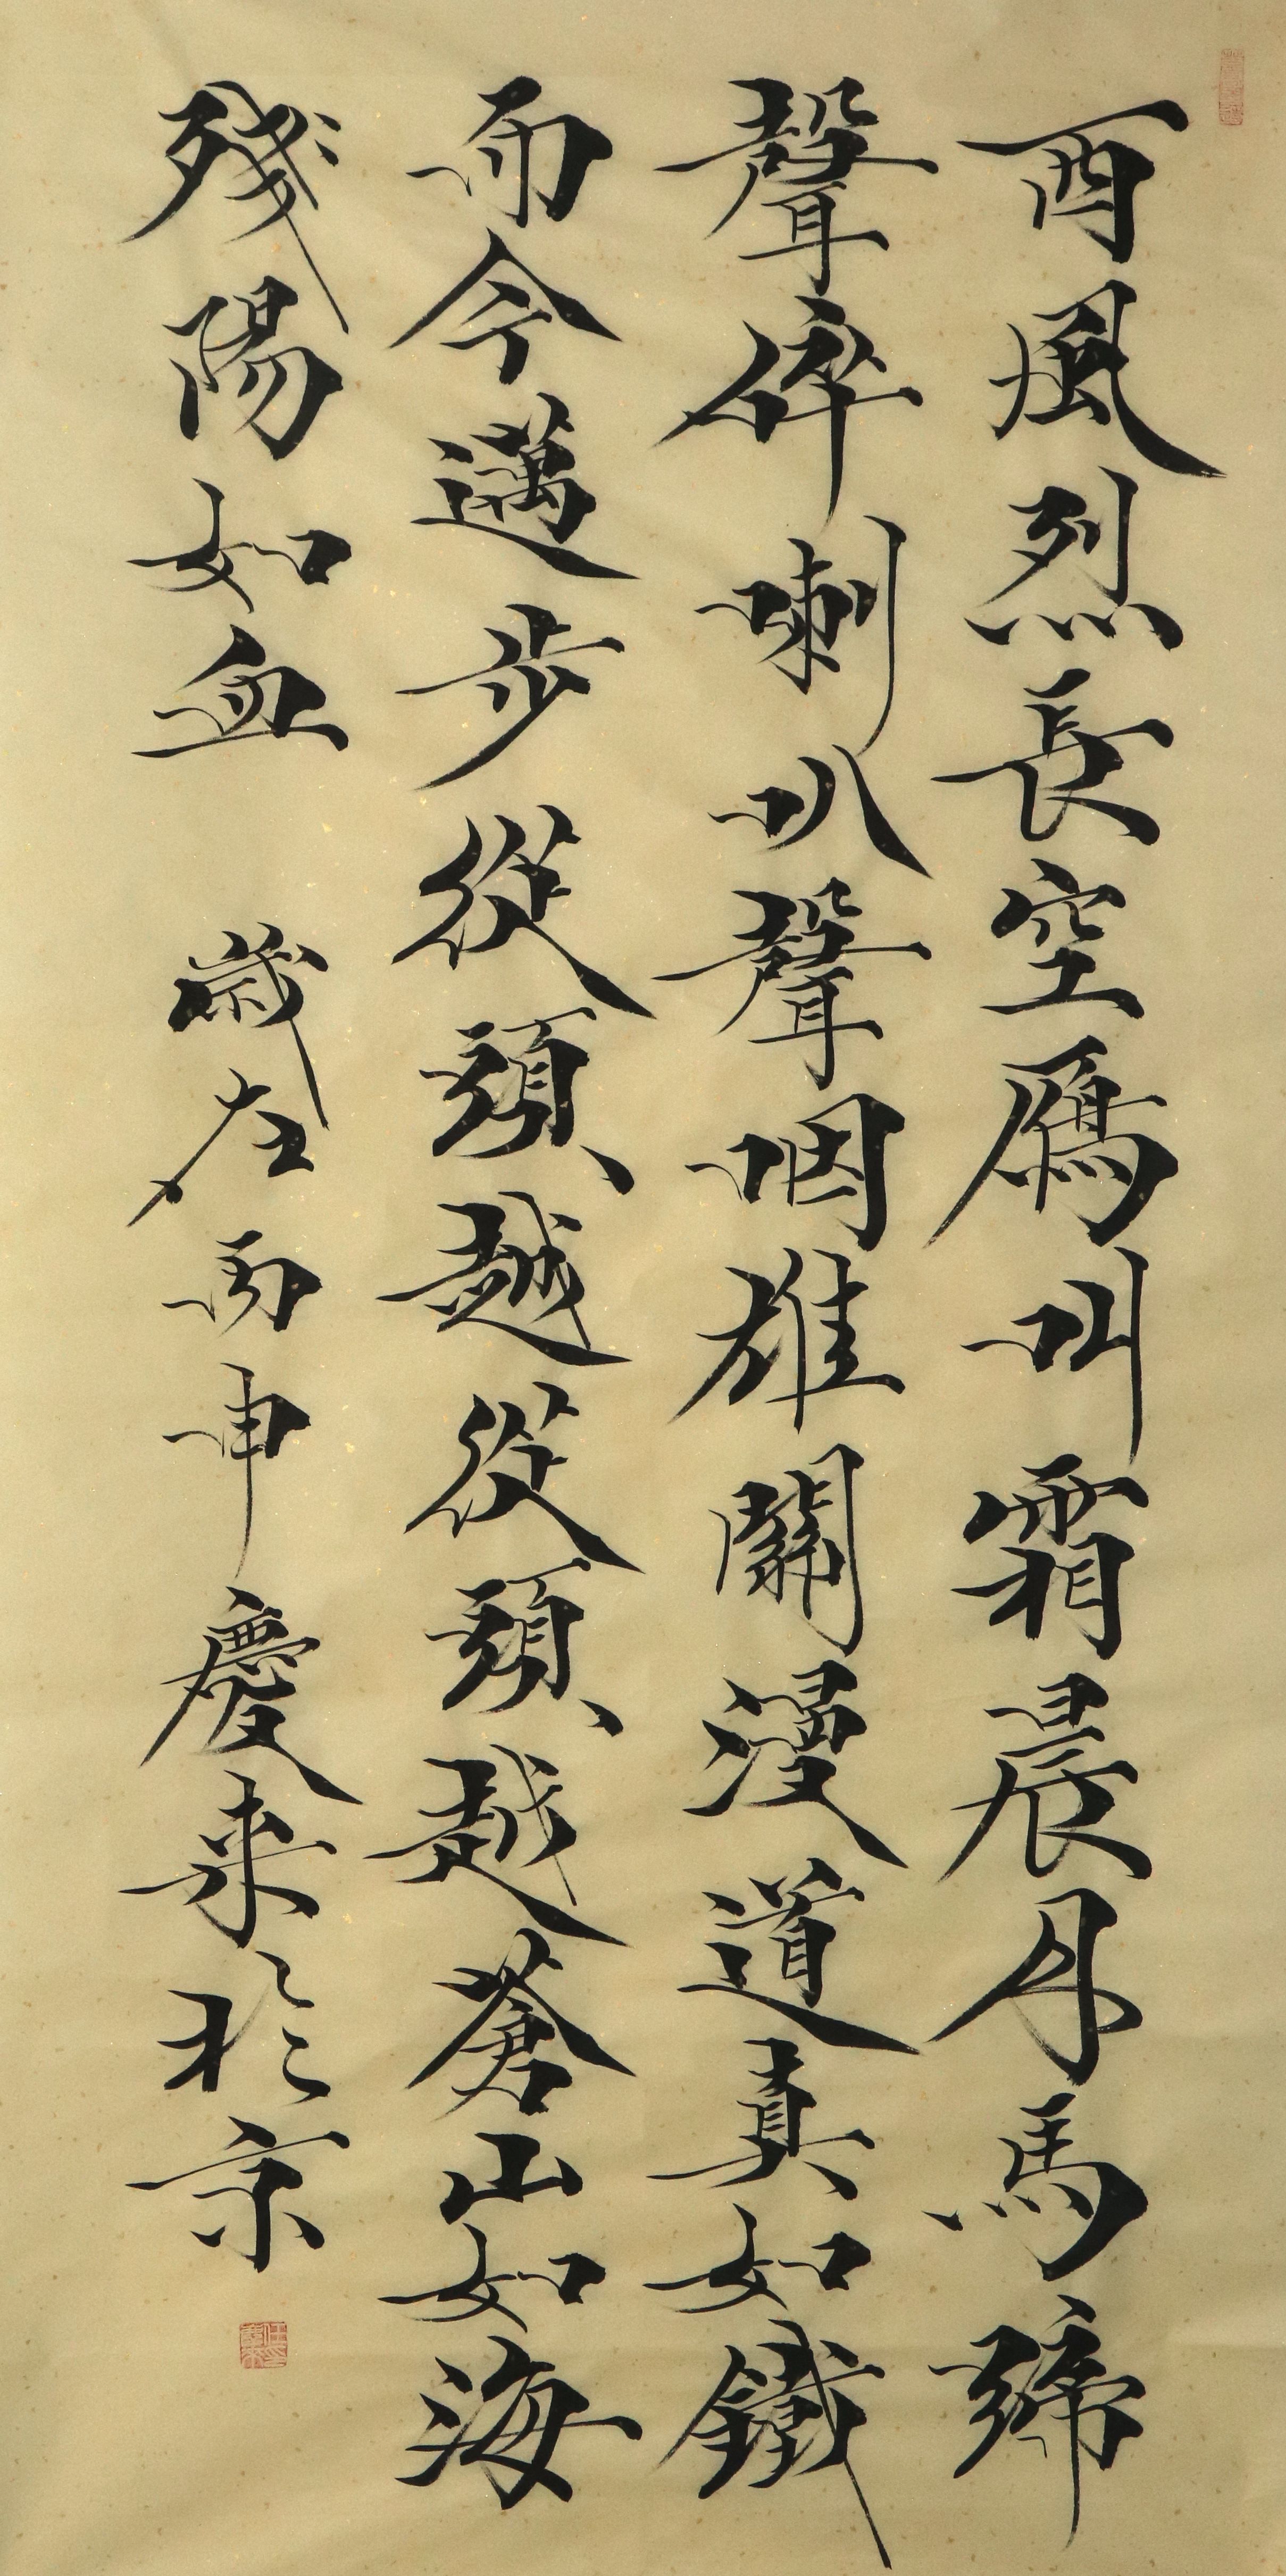 西風烈長空鴈叫霜晨月馬蹄
聲碎喇叭聲咽雄關漫道真如鐵
而今邁步從頭越從頭越蒼山如海
殘陽如血 歲在丙申慶来於京